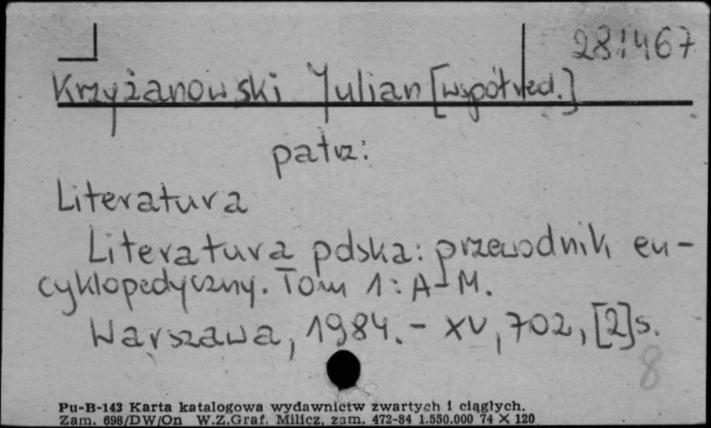 281467
Krzyżanowski Julian [współred.]
patrz:
Literatura
Literatura polska: przewodnik en-
cyklopedyczny. Tom 1: A-M.
Warszawa, 1984. - XV, 702, [2]s.
8
Pu-B-143 Karta katalogowa wydawnictw zwartych i ciągłych.
Zam. 698/DW/On W.Z.Graf. Milicz, zam. 472-84 1.550.000 74 X 120